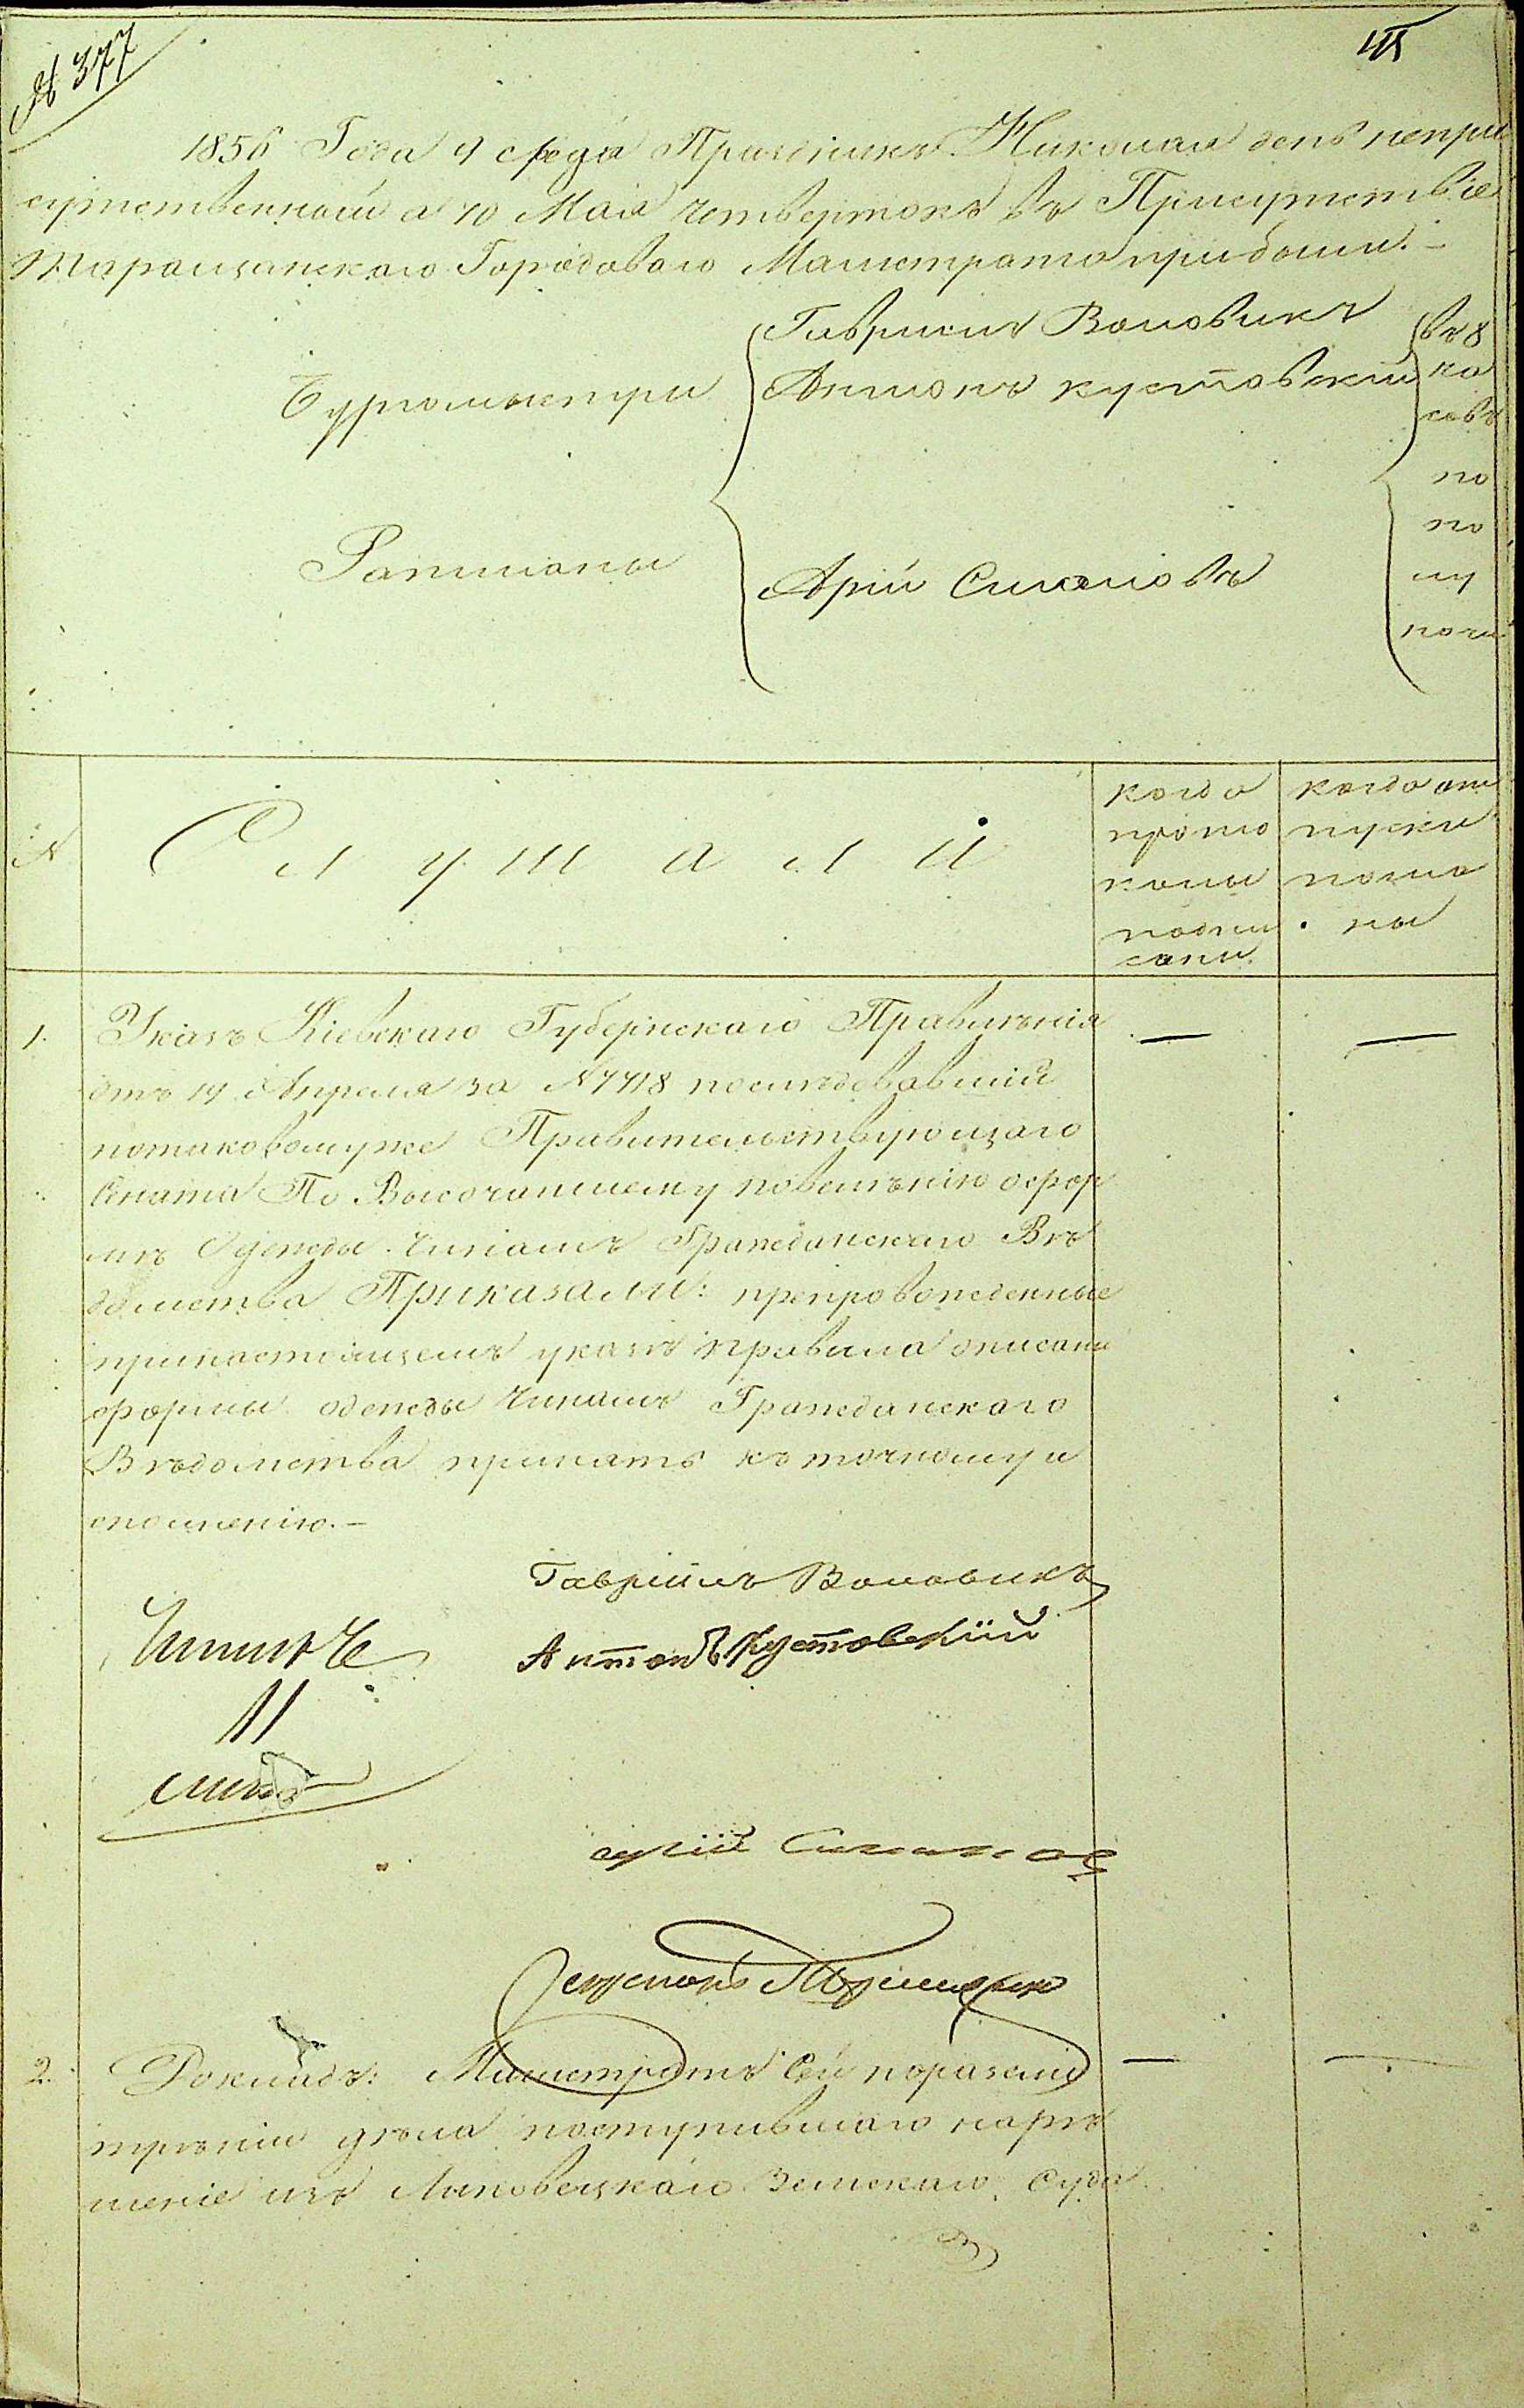 № 377
1856 Года 9 среда Праздникъ Николая день непри
сутственный а 10 Мая четвертокъ въ Присутствіе
Таращанскаго Городоваго Магистрата прибыли. –
Гаврiилъ Воловикъ
Бургомистри
Антонъ Кустовскій
въ 8
ча
совъ
по
по
лу
ночи
Ратманы
Арій Симоновъ
№
Слушали
когда
прото
колы
подпи
сани
когда от
пуски
посла
ны
1. Указъ Кіевскаго Губернскаго Правленія
отъ 14 Апреля за № 7718 последовавшій
потаковомуже Правительствующаго
Сената По Высочайшему повелѣнію офор
мѣ Одежды Чинамъ Гражданскаго Вѣ
домства Приказали: препровожденные
принастоящемъ указѣ правила описани
формы одежды Чинамъ Гражданскаго
Вѣдомства принять къ точному и
сполненію. –
Гаврiилъ Воловикъ
Антонъ Кустовскій
11
арій Симонов
2. Докладъ: Магистратъ Сей поразсмо
трѣніи дѣла поступившаго нарѣ
шеніе изъ Липовецкаго Земскаго Суда